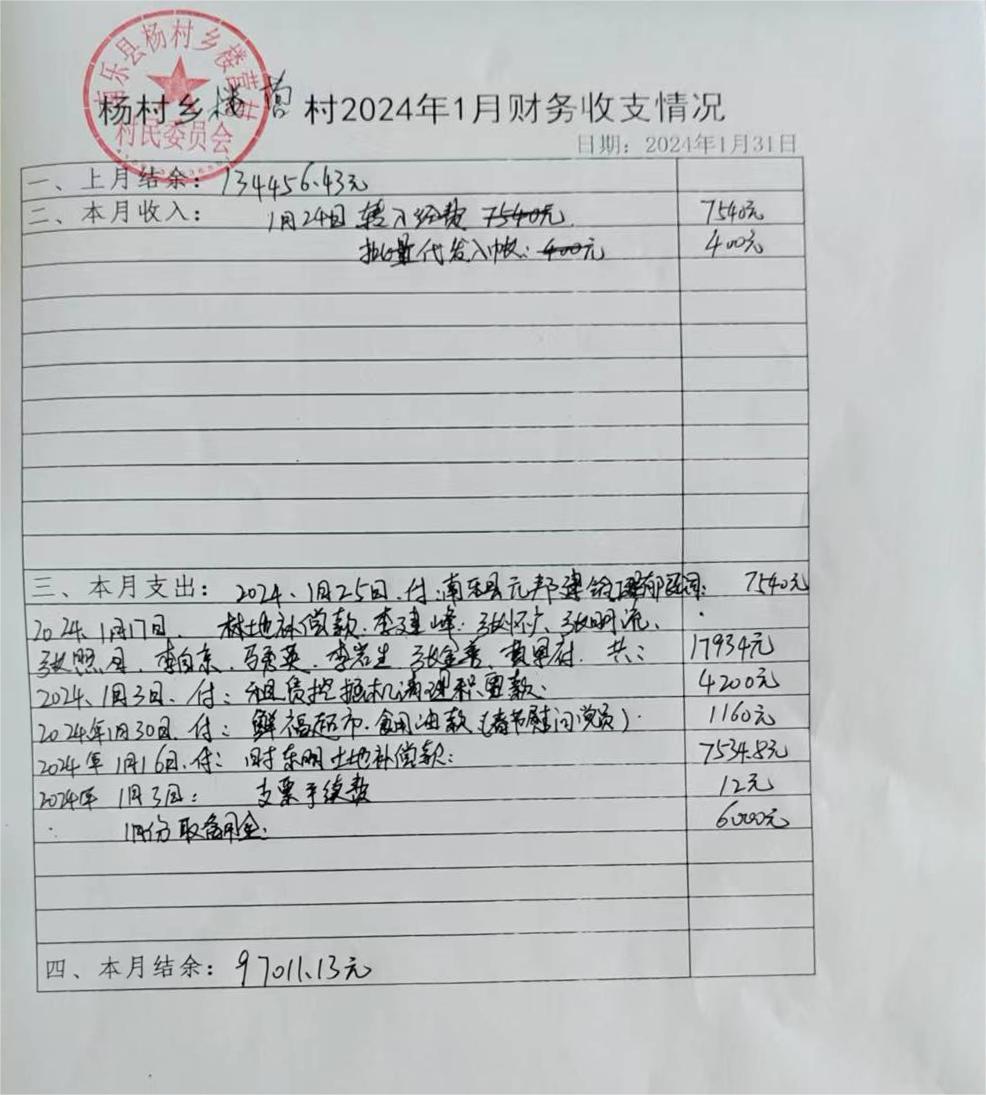 南乐县杨村乡楼营村
村民委员会
杨村乡楼营村2024年1月财务收支情况
日期：2024年1月31日
一、上月结余：134456.43元
二、本月收入： 1月24日 转入经费 7540元 7540元
批量代发入帐：400元 400元
三、本月支出： 2024、1月25日、付：南乐县元邦建 7540元
2024、1月17日、 林地补偿款：李建峰、张怀广、张明流、
张照月、李自京、马勇英、李岩生、张金善、黄 共： 17934元
2024、1月3日、付：租赁挖掘机清理积雪款： 4200元
2024年1月30日、付：鲜福超市、食用油款（春节慰问党员）. 1160元
2024年1月16日、付：时东明土地补偿款： 7534.8元
2024年 1月3日： 支票手续费 12元
1月份取备用金： 6000元
四、本月结余：97011.13元